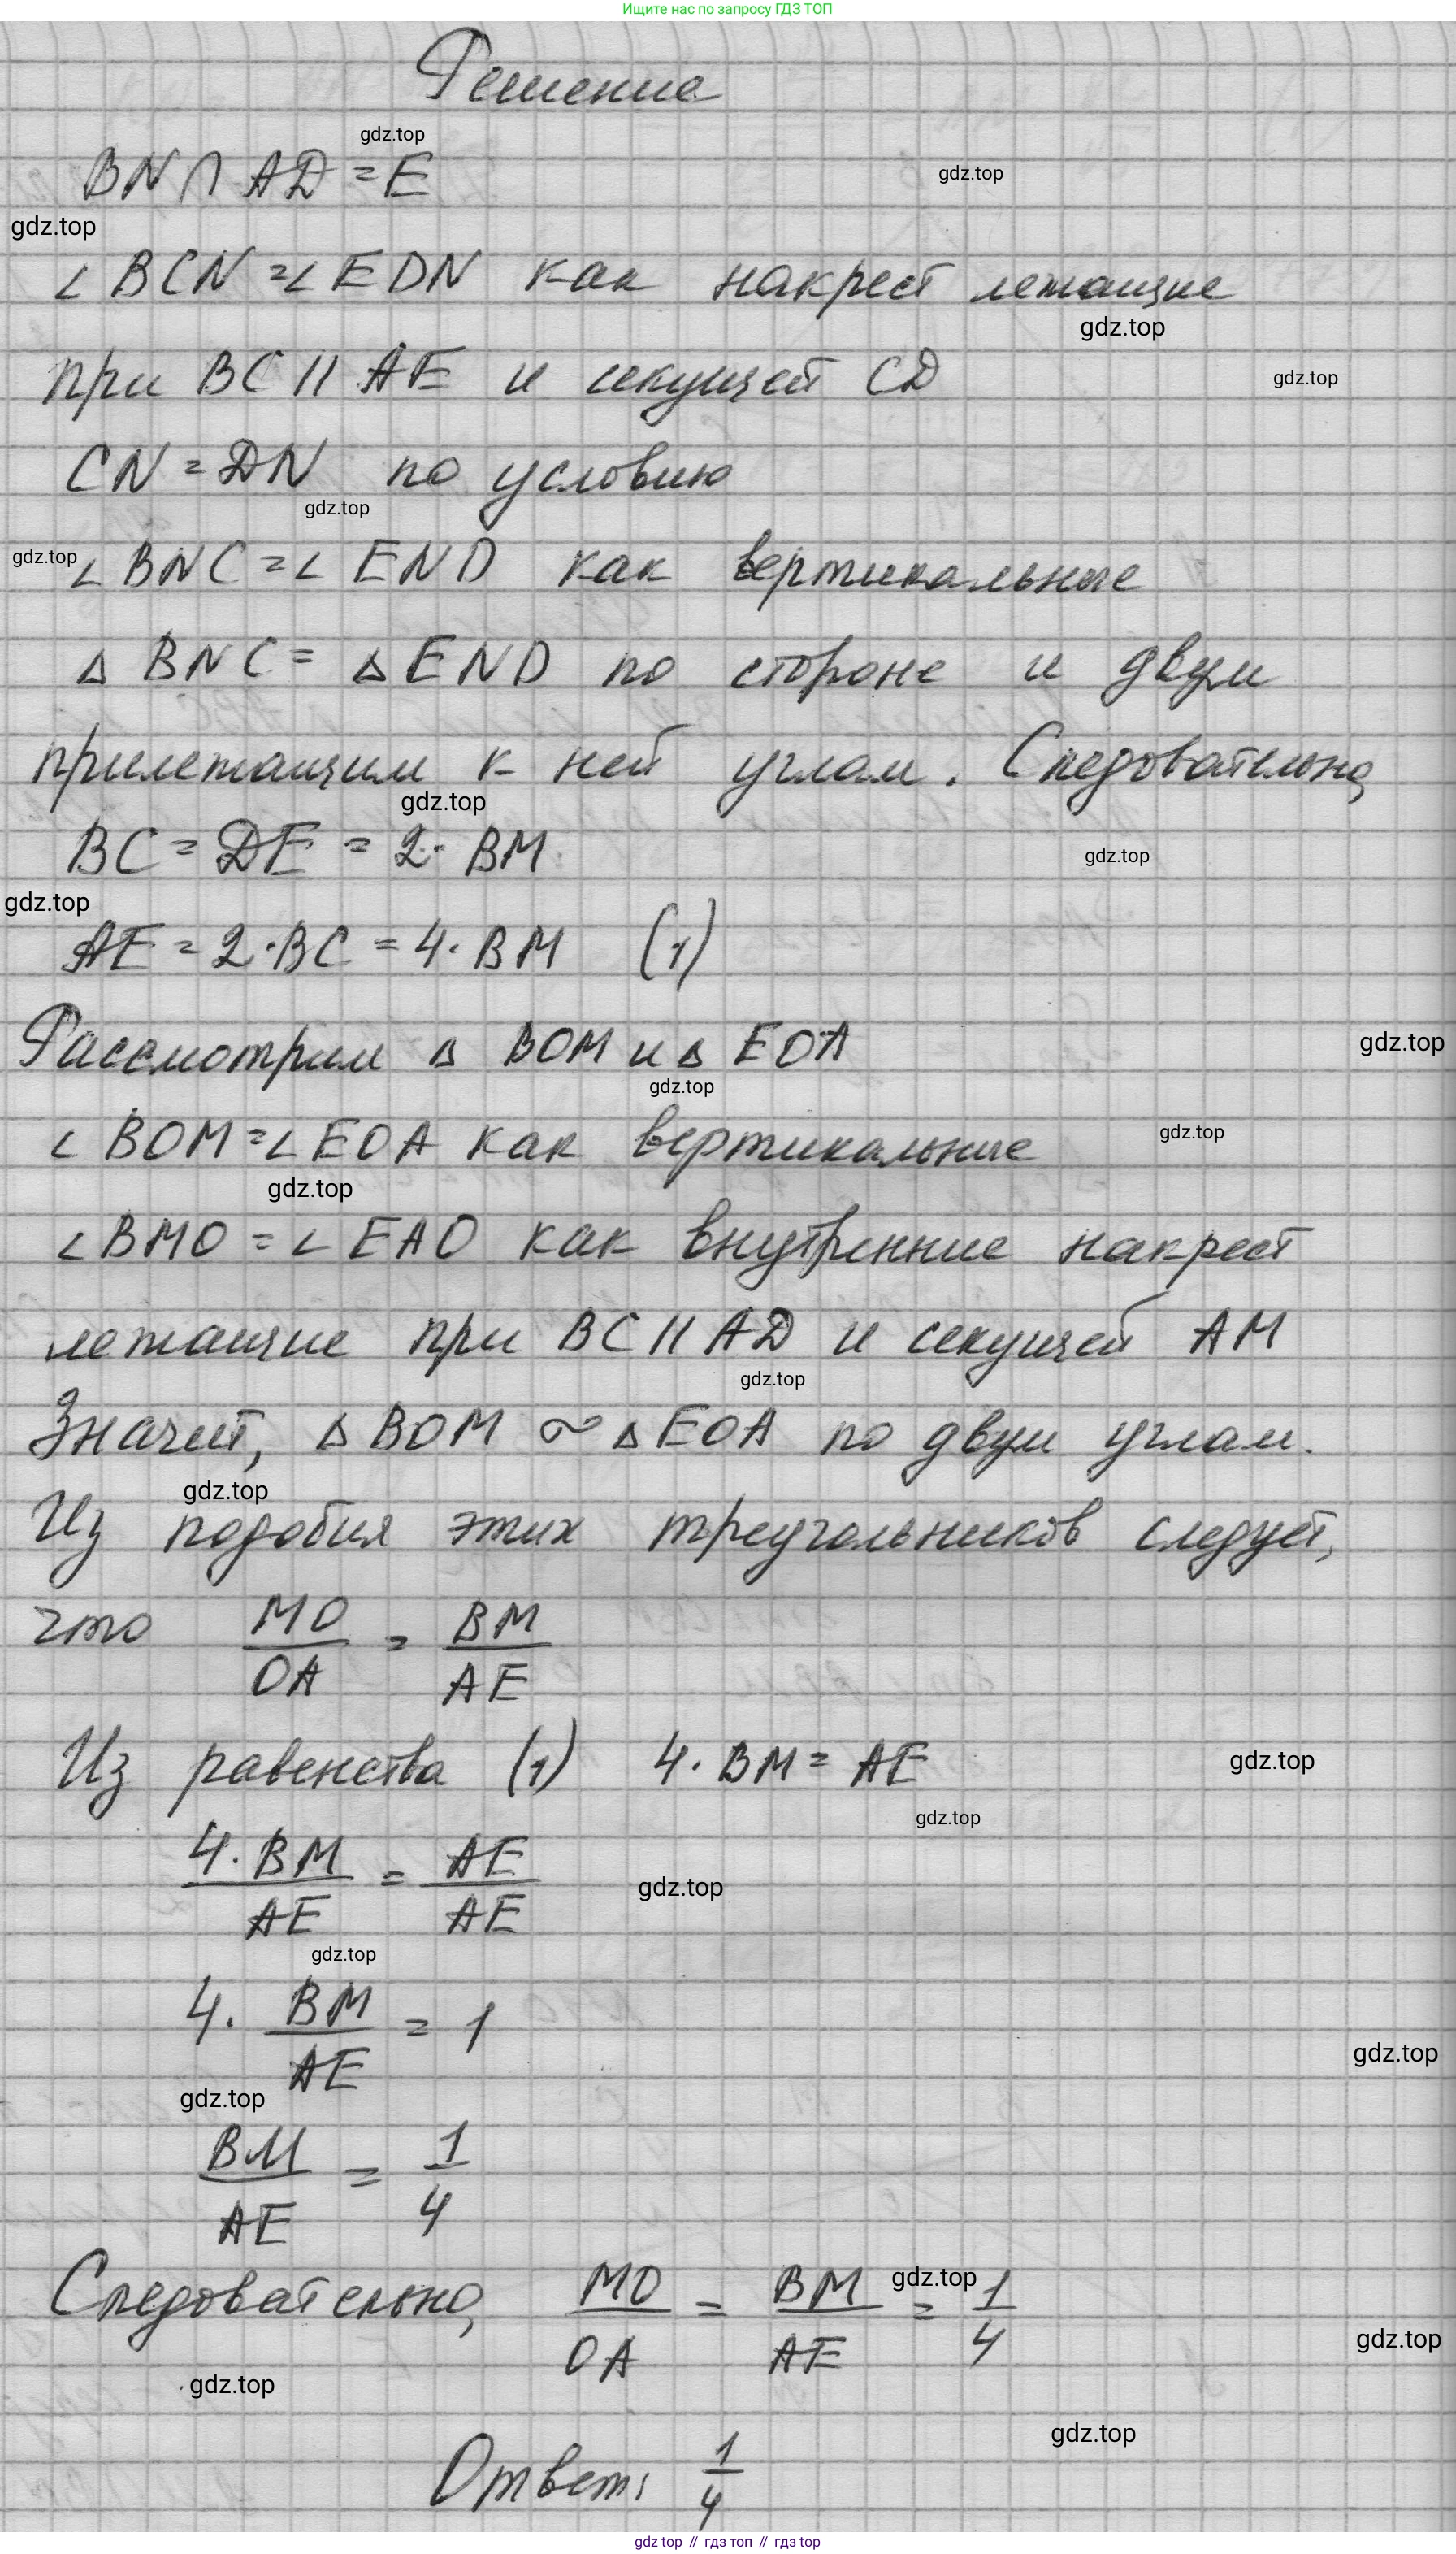 Ищите нас по запросу ГДЗ ТОП
Решение
gdz.top
BN ∩ AD = E
gdz.top
gdz.top
∠ BCN = ∠ EDN как накрест лежащие
gdz.top
при BC || AE и секущей CD
gdz.top
CN = DN по условию
gdz.top
gdz.top
∠ BNC = ∠ END как вертикальные
Δ BNC = Δ END по стороне и двум
прилежащим к ней углам. Следовательно,
gdz.top
BC = DE = 2 · BM
gdz.top
gdz.top
AE = 2 · BC = 4 · BM (1)
Рассмотрим Δ BOM и Δ EOA
gdz.top
gdz.top
∠ BOM = ∠ EOA как вертикальные
gdz.top
gdz.top
∠ BMO = ∠ EAO как внутренние накрест
лежащие при BC || AD и секущей AM
gdz.top
Значит, Δ BOM ∾ Δ EOA по двум углам.
gdz.top
Из подобия этих треугольников следует,
что MO/OA = BM/AE
Из равенства (1) 4 · BM = AE
gdz.top
gdz.top
4 · BM/AE = AE/AE
gdz.top
gdz.top
4 · BM/AE = 1
gdz.top
gdz.top
BM/AE = 1/4
Следовательно, MO/OA = BM/AE = 1/4
gdz.top
gdz.top
gdz.top
gdz.top
Ответ: 1/4
gdz top // гдз топ // гдз top